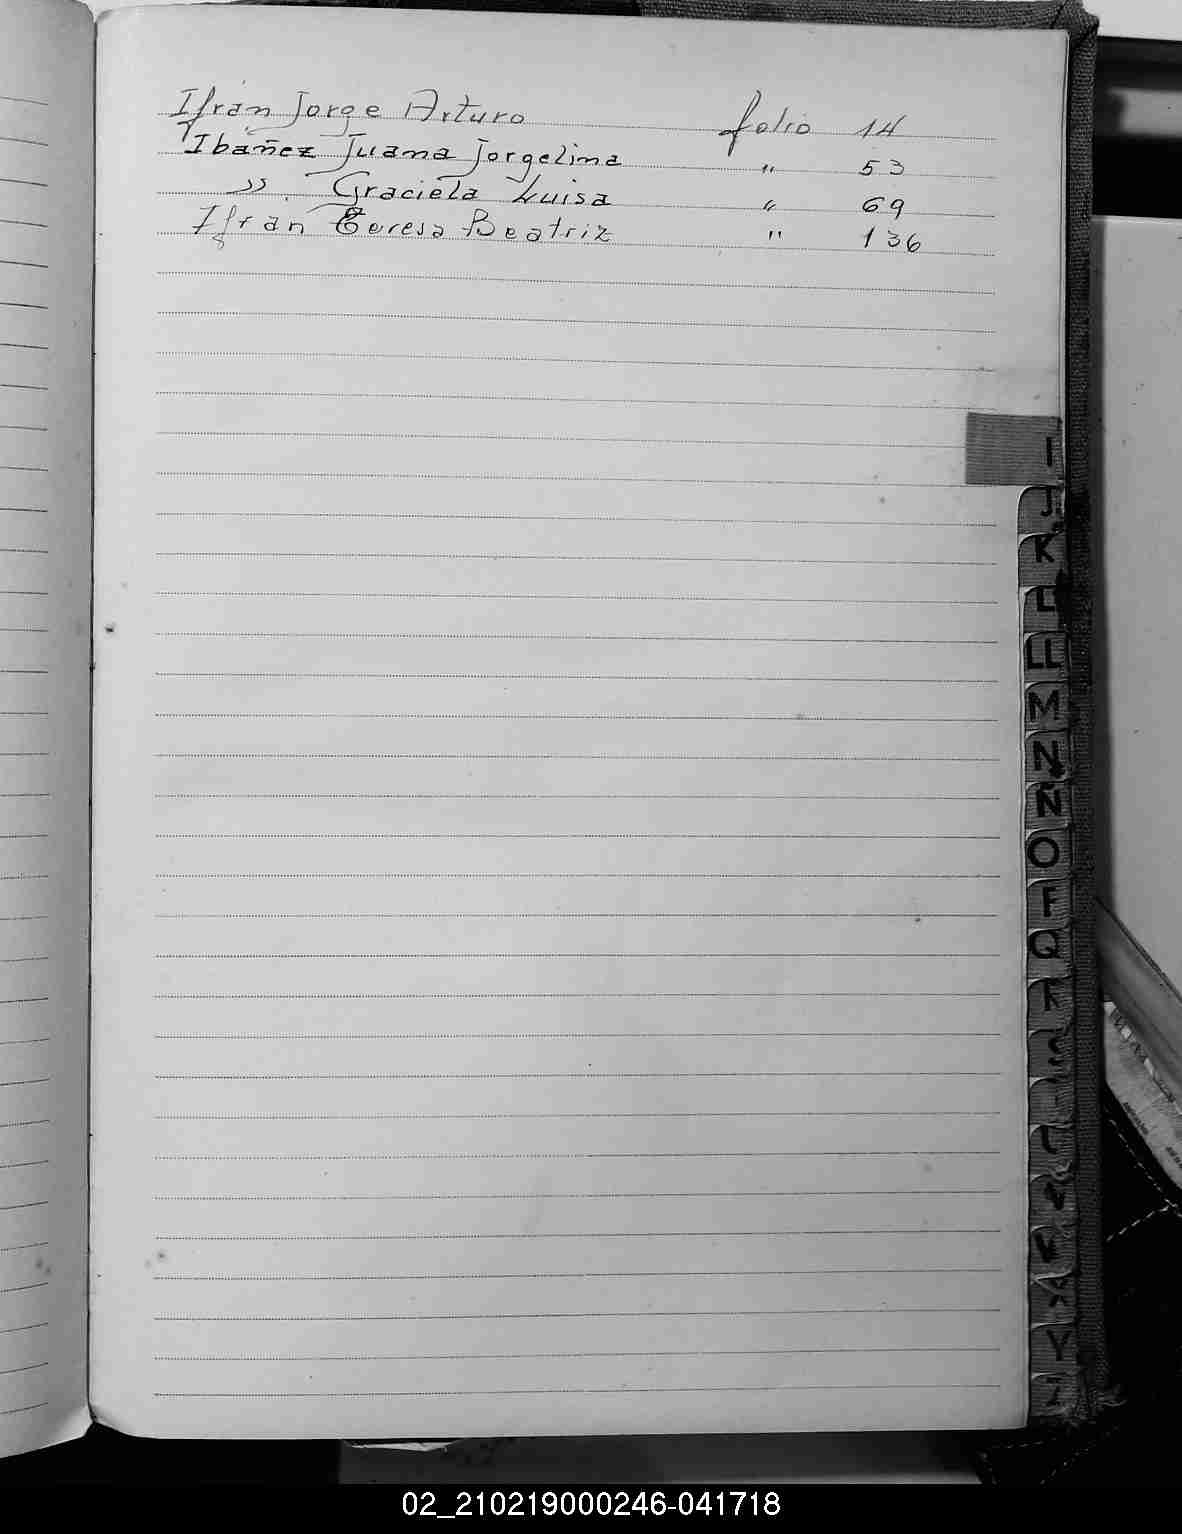 Ifran Jorge Arturo folio 14
Ibáñez Juana Jorgelina " 53
" Graciela Luisa " 69
Ifran Teresa Beatriz " 136
I
J
K
L
LL
M
N
Ñ
O
P
Q
R
S
T
U
V
X
Y
Z
02_210219000246-041718